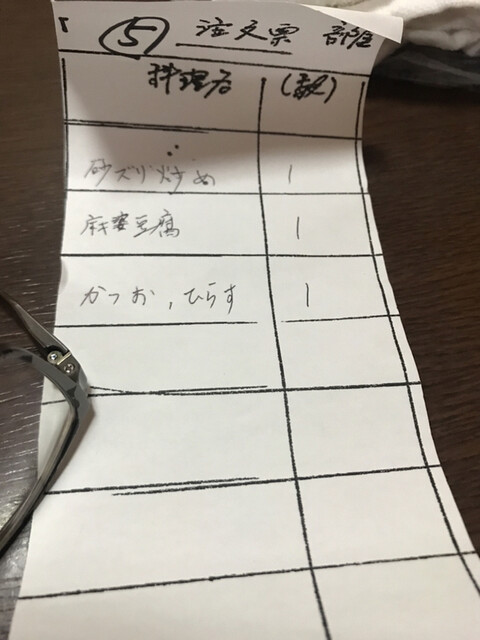 ⑤ 注文票 部屋
料理名 (数)
砂ズリ炒め 1
麻婆豆腐 1
かつお,ひらす 1